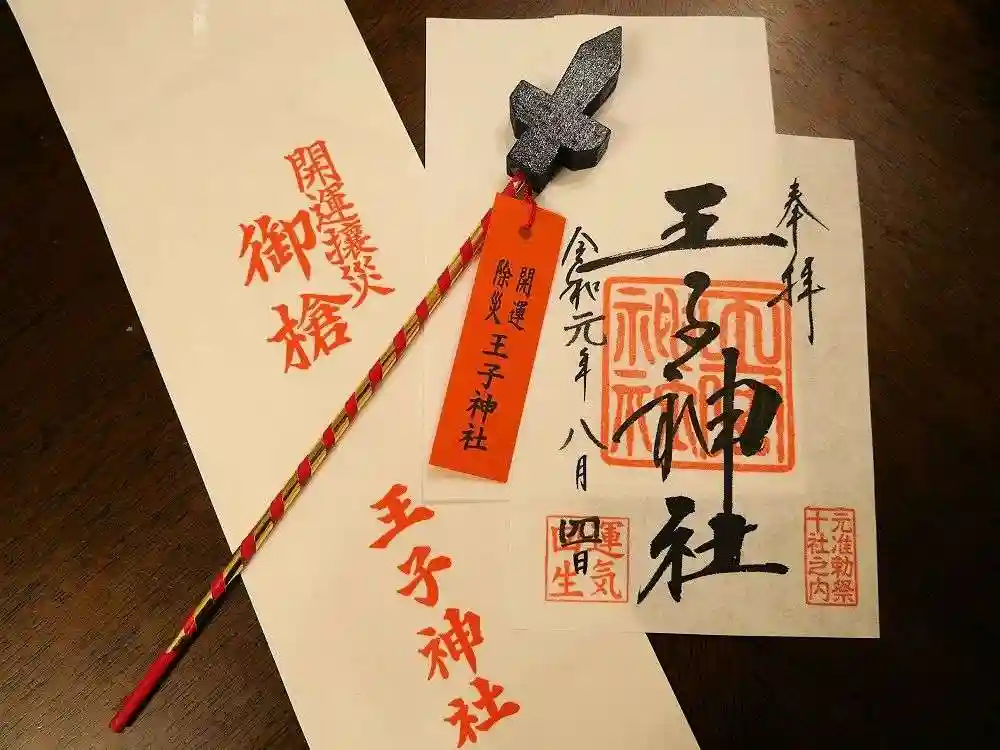 奉拝
王子神社
令和元年八月四日
王子神社
元准勅祭
十社之内
運気
生
開運
除災
王子神社
開運攘災
御槍
王子神社